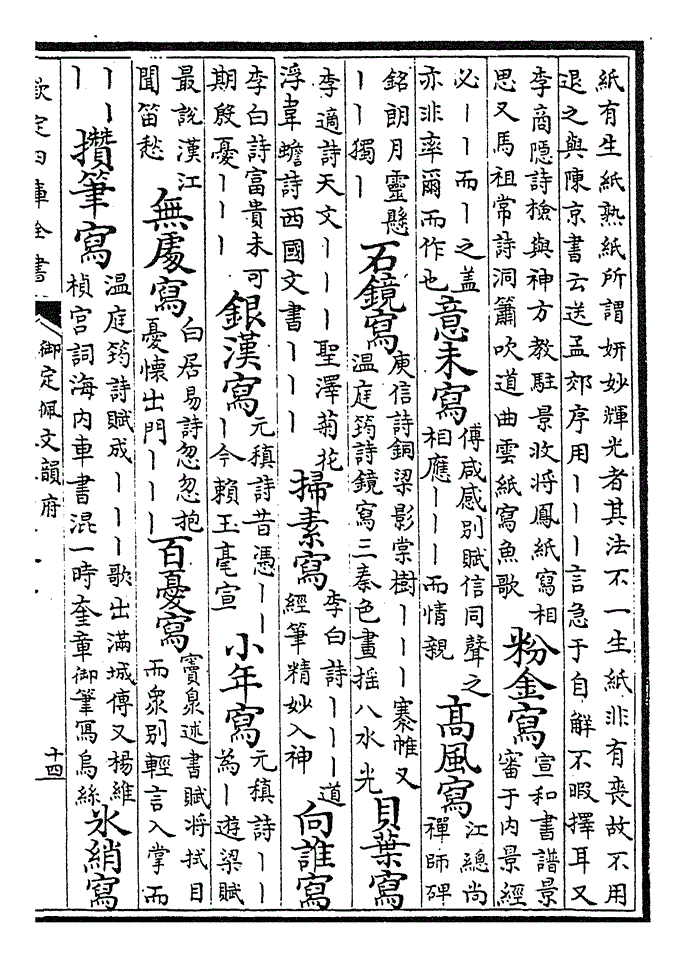 紙有生紙熟紙所謂妍妙輝光者其法不一生紙非有喪故不用
退之與陳京書云送孟郊序用丨丨丨言急于自解不暇擇耳又
李商隱詩檢與神方教駐景收將鳳紙寫相
思又馬祖常詩洞簫吹道曲雲紙寫魚歌
粉金寫
宣和書譜景
審于内景經
必丨丨而丨之蓋
亦非率爾而作也
意未寫
傅咸感别賦信同聲之
相應丨丨丨而情親
高風寫
江總尚
禪師碑
銘朗月靈懸
丨丨獨丨
石鏡寫
庾信詩銅梁影棠樹丨丨丨褰帷又
温庭筠詩鏡寫三秦色畫摇八水光
貝葉寫
李適詩天文丨丨丨聖澤菊花
浮韋蟾詩西國文書丨丨丨
掃素寫
李白詩丨丨丨道
經筆精妙入神
向誰寫
李白詩富貴未可
期殷憂丨丨丨
銀漢寫
元稹詩昔憑丨丨
丨今賴玉毫宣
小年寫
元稹詩丨丨
為丨遊梁賦
最說漢江
聞笛愁
無處寫
白居易詩忽忽抱
憂懷出門丨丨丨
百憂寫
竇泉述書賦將拭目
而衆别輕言入掌而
丨丨
丨
攢筆寫
温庭筠詩賦成丨丨丨歌出滿城傳又楊維
楨宫詞海内車書混一時奎章御筆寫烏絲
氷綃寫
欽定四庫全書
御定佩文韻府
十四